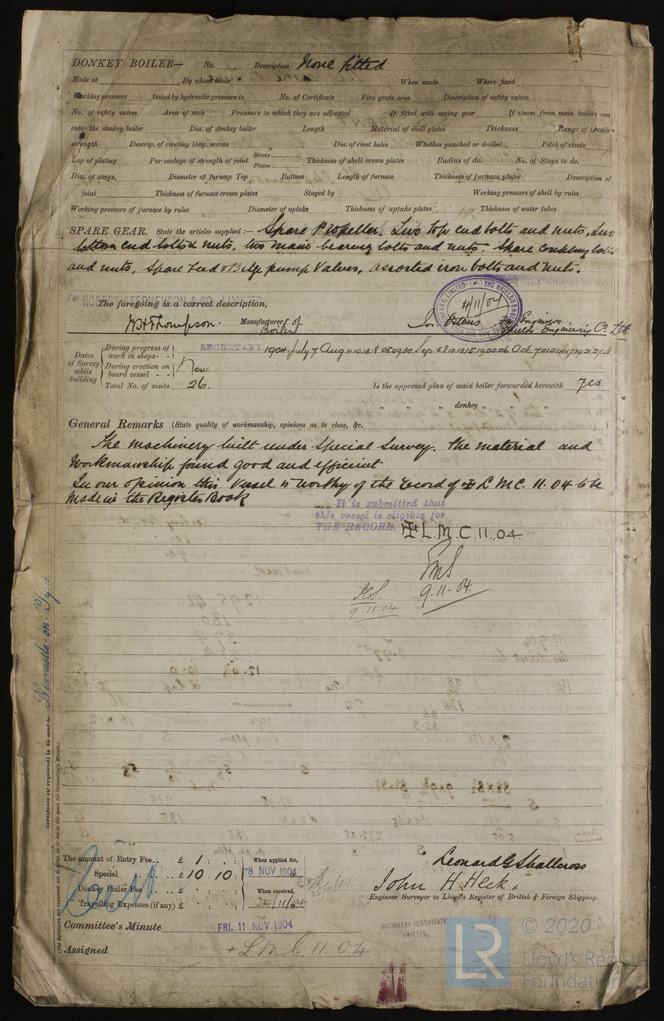 DONKEY BOILER— No. Description None fitted
Made at By whom made When made Where fixed
Working pressure tested by hydraulic pressure to No. of Certificate Fire grate area Description of safety valves
No. of safety valves Area of each Pressure to which they are adjusted If fitted with easing gear If steam from main boilers can
enter the donkey boiler Dia. of donkey boiler Length Material of shell plates Thickness Range of tensile
strength Descrip. of riveting long. seams Dia. of rivet holes Whether punched or drilled Pitch of rivets
Lap of plating Per centage of strength of joint Rivets Plates Thickness of shell crown plates Radius of do. No. of Stays to do.
Dia. of stays. Diameter of furnace Top Bottom Length of furnace Thickness of furnace plates Description of
joint Thickness of furnace crown plates Stayed by Working pressure of shell by rules
Working pressure of furnace by rules Diameter of uptake Thickness of uptake plates Thickness of water tubes
SPARE GEAR. State the articles supplied:— Spare Propeller. Two top end bolts and nuts, two
bottom end bolts & nuts, two main bearing bolts and nuts. Spare coupling bolts
and nuts, Spare Feed & Bilge pump valves, assorted iron bolts and nuts.
For ROBERT STEPHENSON & CO. LIMITED
The foregoing is a correct description,
4/11/04
W H Thompson. Manufacturer of Boiler
SECRETARY
Dates of Survey while building
During progress of work in shops - - 1904 July 7. Aug
During erection on board vessel - - - Nov
Total No. of visits 26. Is the approved plan of main boiler forwarded herewith yes
" " " donkey " " "
General Remarks (State quality of workmanship, opinions as to class, &c.
The machinery built under Special Survey. The material and
Workmanship found good and efficient
In our opinion this Vessel is worthy of the record of ✠ L.M.C. 11.04 to be
made in the Register Book
It is submitted that
this vessel is eligible for
THE RECORD. ✠ L.M.C. 11.04.
9.11.04
9.11.04
Newcastle-on-Tyne
The amount of Entry Fee.. £ 1 : : When applied for,
Special .. £ 10 10 : 8 NOV 1904
Donkey Boiler Fee .. £ : : When received,
Travelling Expenses (if any) £ : : 24/11/04
Leonard G Shallcross
John H. Heck.
Engineer Surveyor to Lloyd's Register of British & Foreign Shipping.
Committee's Minute FRI. 11 NOV 1904
MACHINERY CERTIFICATE
WRITTEN
Assigned + L M C 11.04
© 2020
LR
Lloyd's Register
Foundation